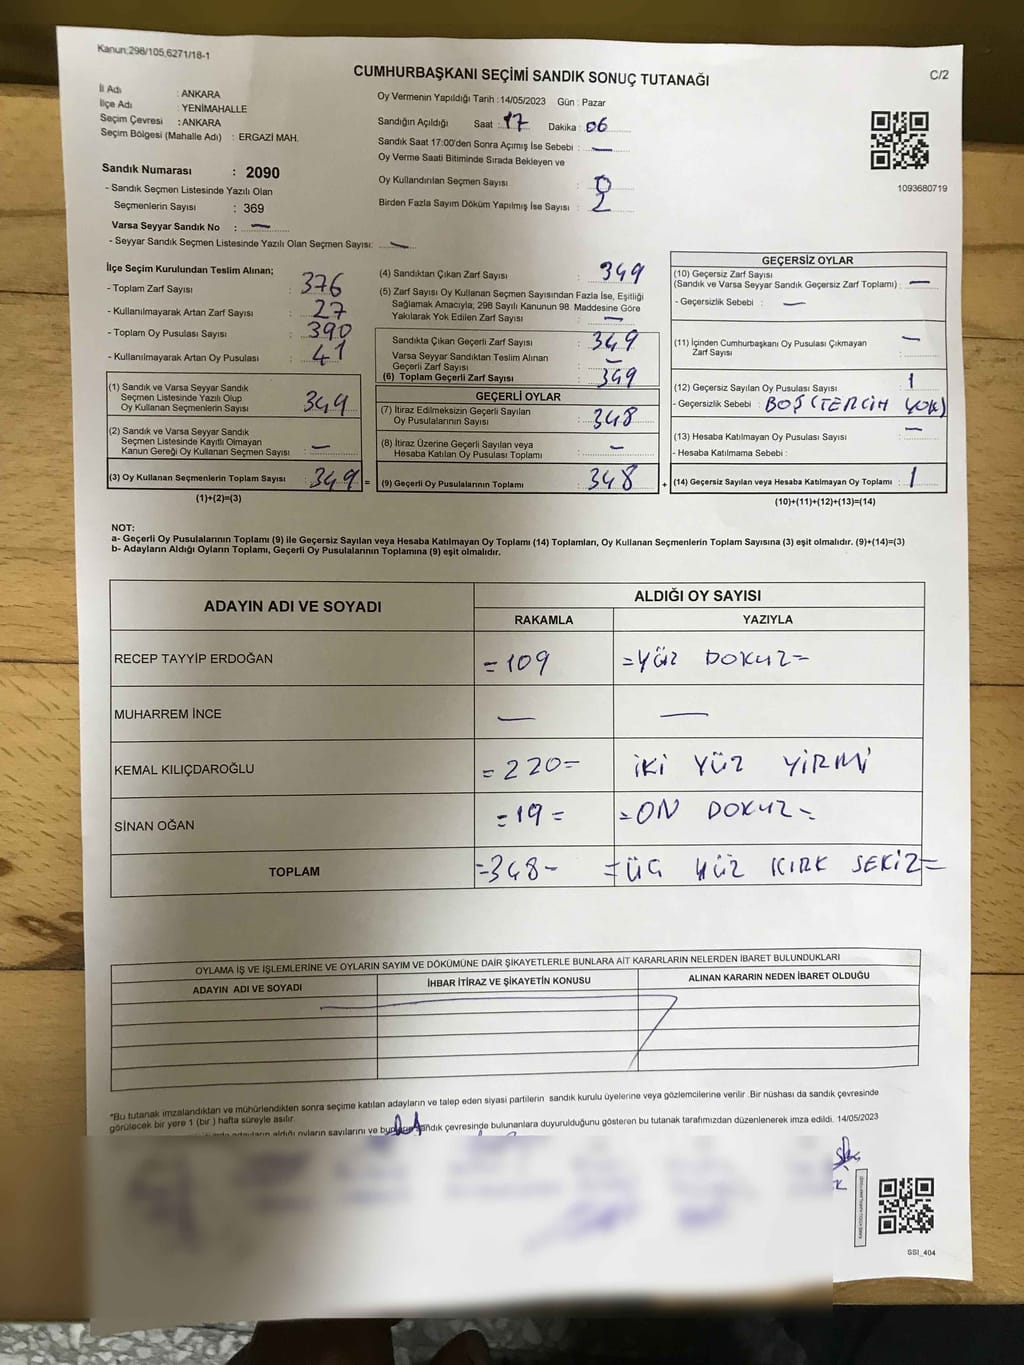 Kanun;298/105,6271/18-1
CUMHURBAŞKANI SEÇİMİ SANDIK SONUÇ TUTANAĞI
C/2
İl Adı : ANKARA
İlçe Adı : YENİMAHALLE
Seçim Çevresi : ANKARA
Seçim Bölgesi (Mahalle Adı) : ERGAZİ MAH.
Oy Vermenin Yapıldığı Tarih :14/05/2023 Gün : Pazar
Sandığın Açıldığı Saat : 17 Dakika : 06
Sandık Saat 17:00'den Sonra Açımış İse Sebebi : —
Oy Verme Saati Bitiminde Sırada Bekleyen ve
Oy Kullandırılan Seçmen Sayısı : 0
Birden Fazla Sayım Döküm Yapılmış İse Sayısı : 2
1093680719
Sandık Numarası : 2090
- Sandık Seçmen Listesinde Yazılı Olan
Seçmenlerin Sayısı : 369
Varsa Seyyar Sandık No : —
- Seyyar Sandık Seçmen Listesinde Yazılı Olan Seçmen Sayısı: —
İlçe Seçim Kurulundan Teslim Alınan;
- Toplam Zarf Sayısı : 376
- Kullanılmayarak Artan Zarf Sayısı : 27
- Toplam Oy Pusulası Sayısı : 390
- Kullanılmayarak Artan Oy Pusulası : 41
(1) Sandık ve Varsa Seyyar Sandık
Seçmen Listesinde Yazılı Olup
Oy Kullanan Seçmenlerin Sayısı : 349
(2) Sandık ve Varsa Seyyar Sandık
Seçmen Listesinde Kayıtlı Olmayan
Kanun Gereği Oy Kullanan Seçmen Sayısı : —
(3) Oy Kullanan Seçmenlerin Toplam Sayısı : 349 =
(1)+(2)=(3)
(4) Sandıktan Çıkan Zarf Sayısı : 349
(5) Zarf Sayısı Oy Kullanan Seçmen Sayısından Fazla İse, Eşitliği
Sağlamak Amacıyla; 298 Sayılı Kanunun 98. Maddesine Göre
Yakılarak Yok Edilen Zarf Sayısı : —
Sandıkta Çıkan Geçerli Zarf Sayısı : 349
Varsa Seyyar Sandıktan Teslim Alınan
Geçerli Zarf Sayısı : —
(6) Toplam Geçerli Zarf Sayısı : 349
GEÇERLİ OYLAR
(7) İtiraz Edilmeksizin Geçerli Sayılan
Oy Pusulalarının Sayısı : 348
(8) İtiraz Üzerine Geçerli Sayılan veya
Hesaba Katılan Oy Pusulası Toplamı : —
(9) Geçerli Oy Pusulalarının Toplamı : 348 +
GEÇERSİZ OYLAR
(10) Geçersiz Zarf Sayısı
(Sandık ve Varsa Seyyar Sandık Geçersiz Zarf Toplamı) : —
- Geçersizlik Sebebi : —
(11) İçinden Cumhurbaşkanı Oy Pusulası Çıkmayan
Zarf Sayısı : —
(12) Geçersiz Sayılan Oy Pusulası Sayısı : 1
- Geçersizlik Sebebi : BOŞ (TERCİH YOK)
(13) Hesaba Katılmayan Oy Pusulası Sayısı : —
- Hesaba Katılmama Sebebi :
(14) Geçersiz Sayılan veya Hesaba Katılmayan Oy Toplamı : 1
(10)+(11)+(12)+(13)=(14)
NOT:
a- Geçerli Oy Pusulalarının Toplamı (9) ile Geçersiz Sayılan veya Hesaba Katılmayan Oy Toplamı (14) Toplamları, Oy Kullanan Seçmenlerin Toplam Sayısına (3) eşit olmalıdır. (9)+(14)=(3)
b- Adayların Aldığı Oyların Toplamı, Geçerli Oy Pusulalarının Toplamına (9) eşit olmalıdır.
ADAYIN ADI VE SOYADI ALDIĞI OY SAYISI
RAKAMLA YAZIYLA
RECEP TAYYİP ERDOĞAN =109 =YÜZ DOKUZ=
MUHARREM İNCE — —
KEMAL KILIÇDAROĞLU =220= İKİ YÜZ YİRMİ
SİNAN OĞAN =19= =ON DOKUZ=
TOPLAM =348- =ÜÇ YÜZ KIRK SEKİZ=
OYLAMA İŞ VE İŞLEMLERİNE VE OYLARIN SAYIM VE DÖKÜMÜNE DAİR ŞİKAYETLERLE BUNLARA AİT KARARLARIN NELERDEN İBARET BULUNDUKLARI
ADAYIN ADI VE SOYADI İHBAR İTİRAZ VE ŞİKAYETİN KONUSU ALINAN KARARIN NEDEN İBARET OLDUĞU
*Bu tutanak imzalandıktan ve mühürlendikten sonra seçime katılan adayların ve talep eden siyasi partilerin sandık kurulu üyelerine veya gözlemcilerine verilir .Bir nüshası da sandık çevresinde
görülecek bir yere 1 (bir ) hafta süreyle asılır.
adayların aldığı oyların sayılarını ve sandık çevresinde bulunanlara duyurulduğunu gösteren bu tutanak tarafımızdan düzenlenerek imza edildi. 14/05/2023
SSI_404